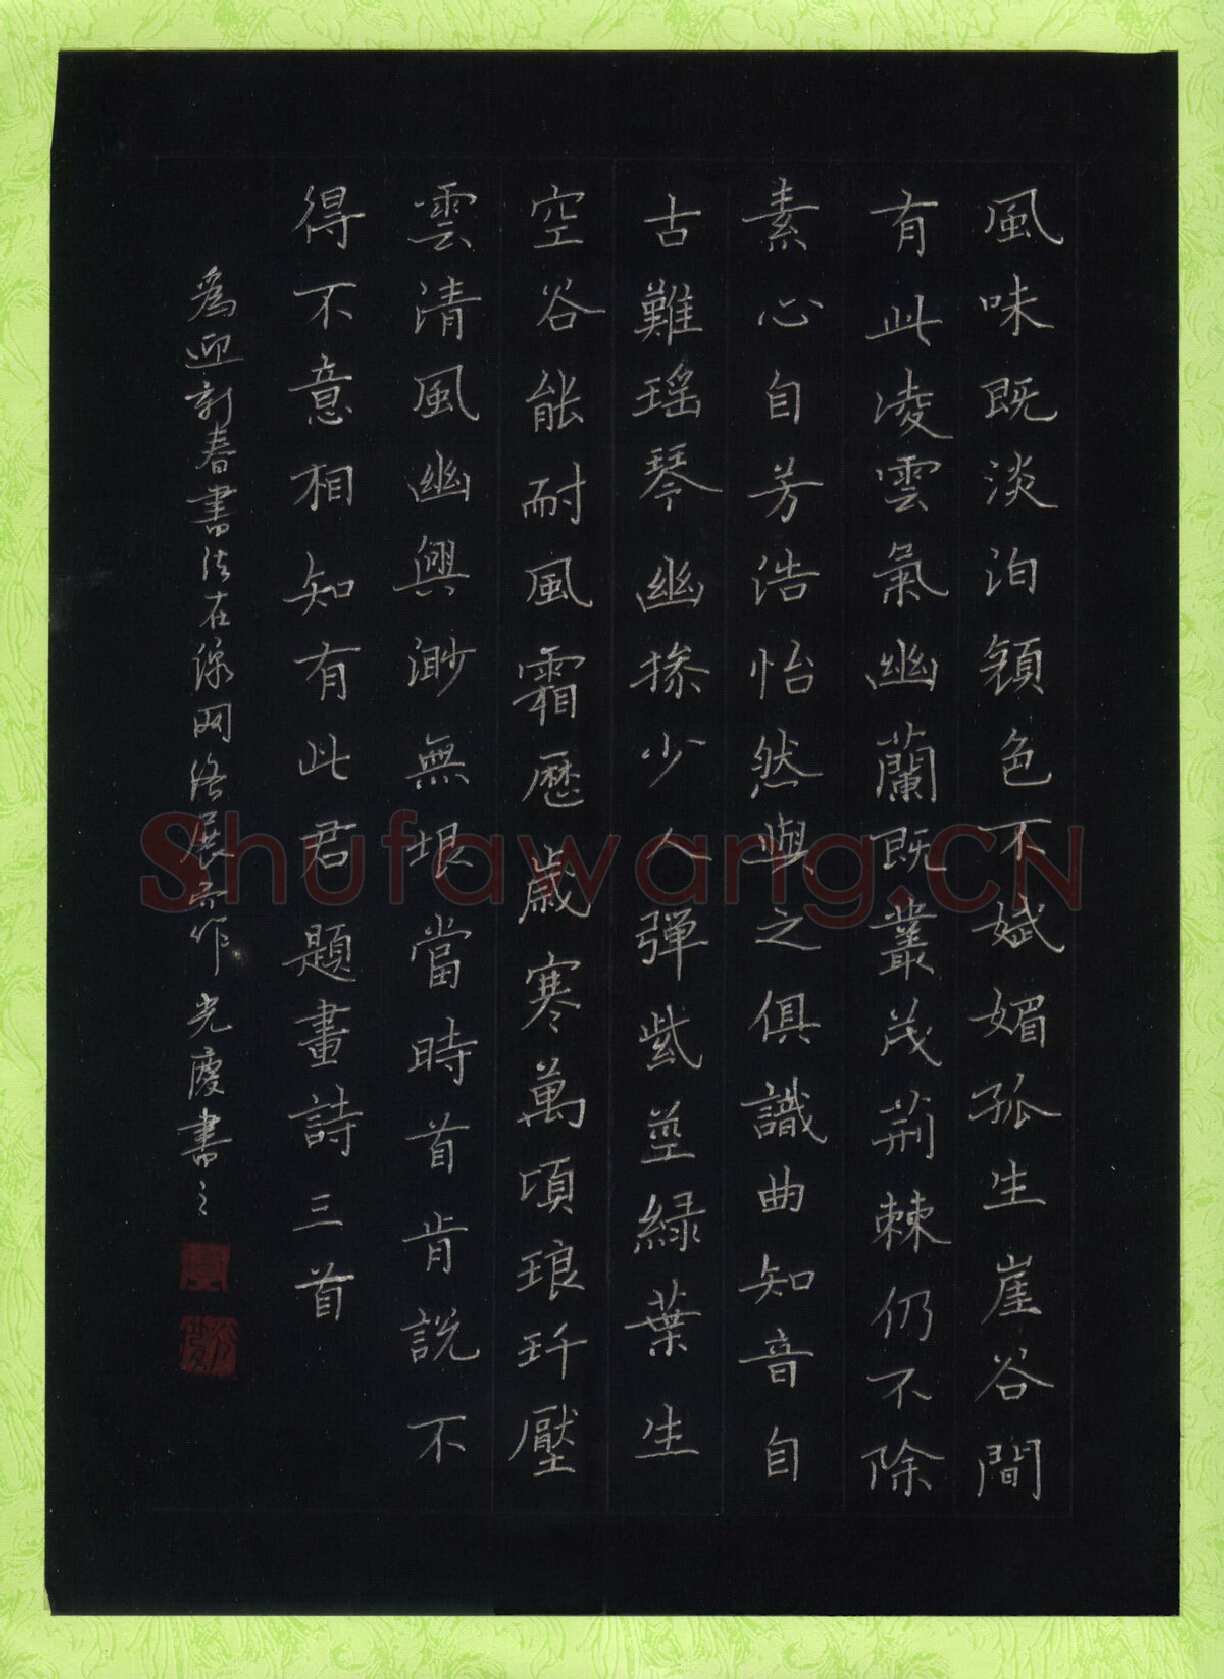 風味既淡泊顏色不斌媚孤生崖谷間
有此凌雲氣幽蘭既叢茂荊棘仍不除
素心自芳浩怡然與之俱識曲知音自
古難瑶琴幽操少人彈紫莖緑葉生
空谷能耐風霜歷歲寒萬頃琅玕壓
雲清風幽興渺無垠當時首肯説不
得不意相知有此君 題畫詩三首
為迎新春書法在線网络展而作 光慶書之
Shufawang.CN